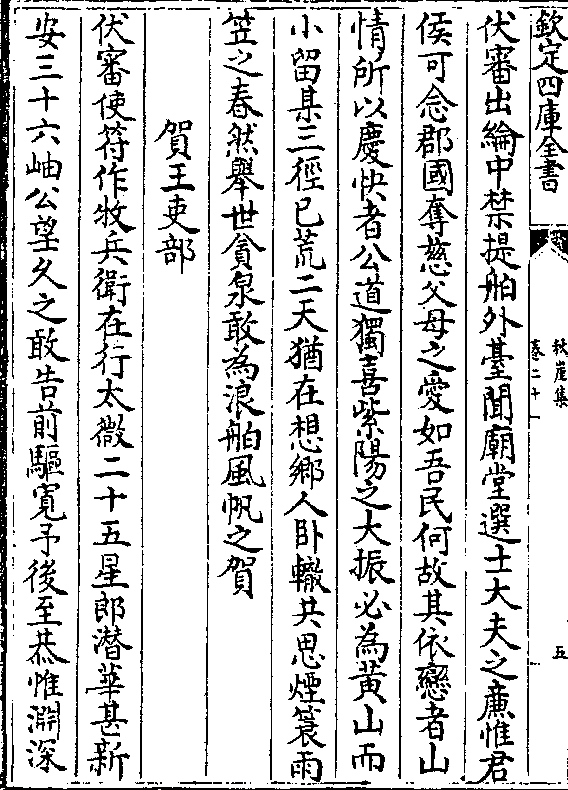 欽定四庫全書
秋崖集
卷二十一
五
伏審出綸中禁提舶外臺聞廟堂選士大夫之廉惟君
侯可念郡國奪慈父母之愛如吾民何故其依戀者山
情所以慶快者公道獨喜紫陽之大振必為黄山而
小留某三徑已荒二天猶在想鄉人卧轍共思煙簑雨
笠之春然舉世貪泉敢為浪舶風帆之賀
賀王吏部
伏審使符作牧兵衛在行太微二十五星郎潜華甚新
安三十六岫公望久之敢告前驅寛予後至恭惟淵深